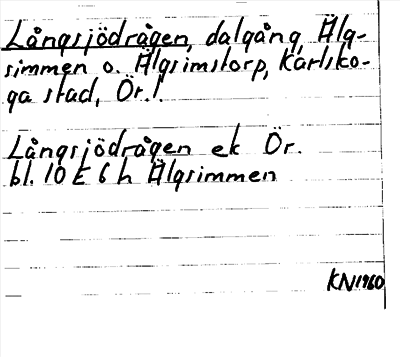 Långsjödrågen, dalgång, Älg-
simmen o. Älgsimstorp, Karlsko-
ga stad, Ör.!
Långsjödrågen ek Ör.
bl. 10 E 6 h Älgsimmen
KN1960